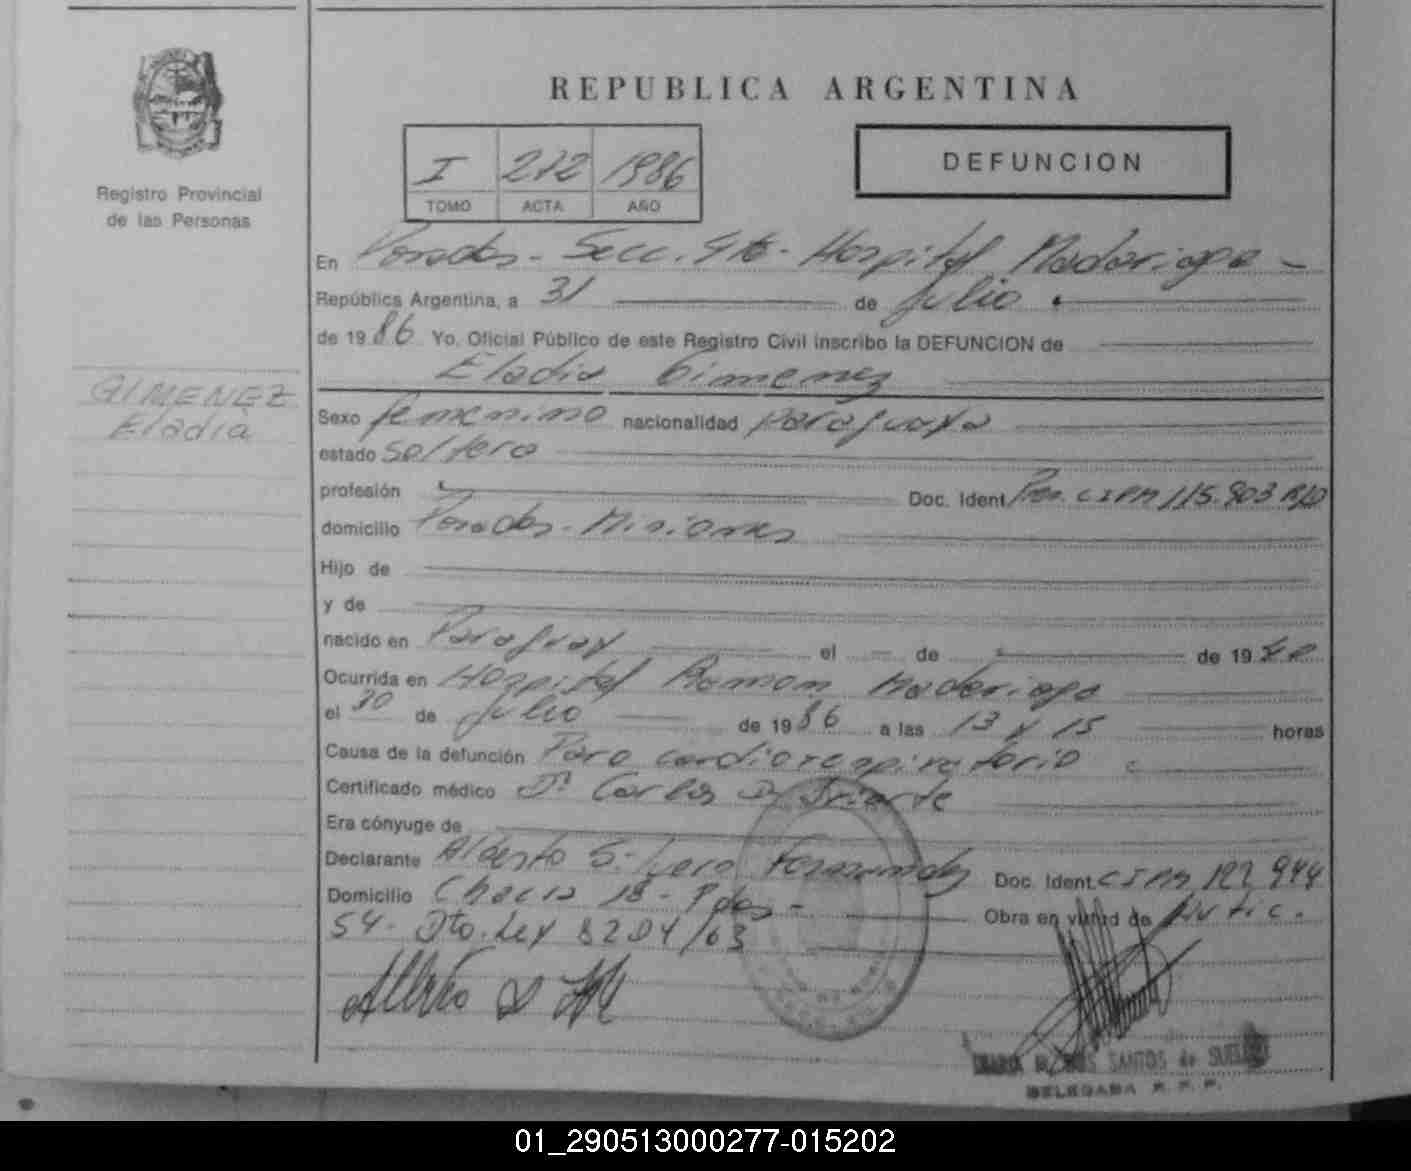 REPUBLICA ARGENTINA
I 272 1986
TOMO ACTA AÑO
DEFUNCION
Registro Provincial
de las Personas
GIMENEZ
Eladia
En Posadas - Secc. 4ta - Hospital Madariaga -
República Argentina, a 31 de Julio
de 1986 Yo, Oficial Público de este Registro Civil inscribo la DEFUNCION de
Eladia Gimenez
Sexo femenino nacionalidad paraguaya
estado soltera
profesión Doc. Ident. CIPM 115.903
domicilio Posadas - Misiones
Hijo de
y de
nacido en Paraguay el de de 19
Ocurrida en Hospital Ramon Madariaga
el 30 de Julio de 1986 a las 13 y 15 horas
Causa de la defunción Paro cardiorespiratorio
Certificado médico Dr Carlos D. Iriarte
Era cónyuge de
Declarante Alberto Fernandez Doc. Ident. CIPM 122.944
Domicilio Chacra 18 - Pdas - Obra en virtud de Artic.
54 - Dto. Ley 8204/63
SANTOS de
DELEGADA R. P. P.
01_290513000277-015202